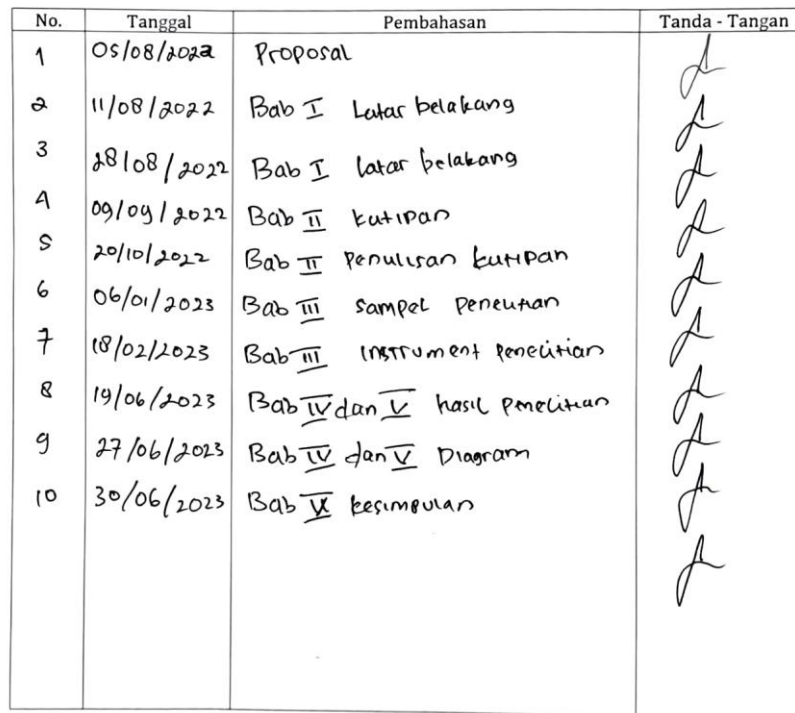 No. Tanggal Pembahasan Tanda - Tangan
1 05/08/2022 Proposal
2 11/08/2022 Bab I Latar belakang
3 28/08/2022 Bab I latar belakang
4 09/09/2022 Bab II kutipan
5 20/10/2022 Bab II Penulisan kutipan
6 06/01/2023 Bab III sampel Penelitian
7 18/02/2023 Bab III instrument Penelitian
8 19/06/2023 Bab IV dan V hasil Penelitian
9 27/06/2023 Bab IV dan V Diagram
10 30/06/2023 Bab V kesimpulan